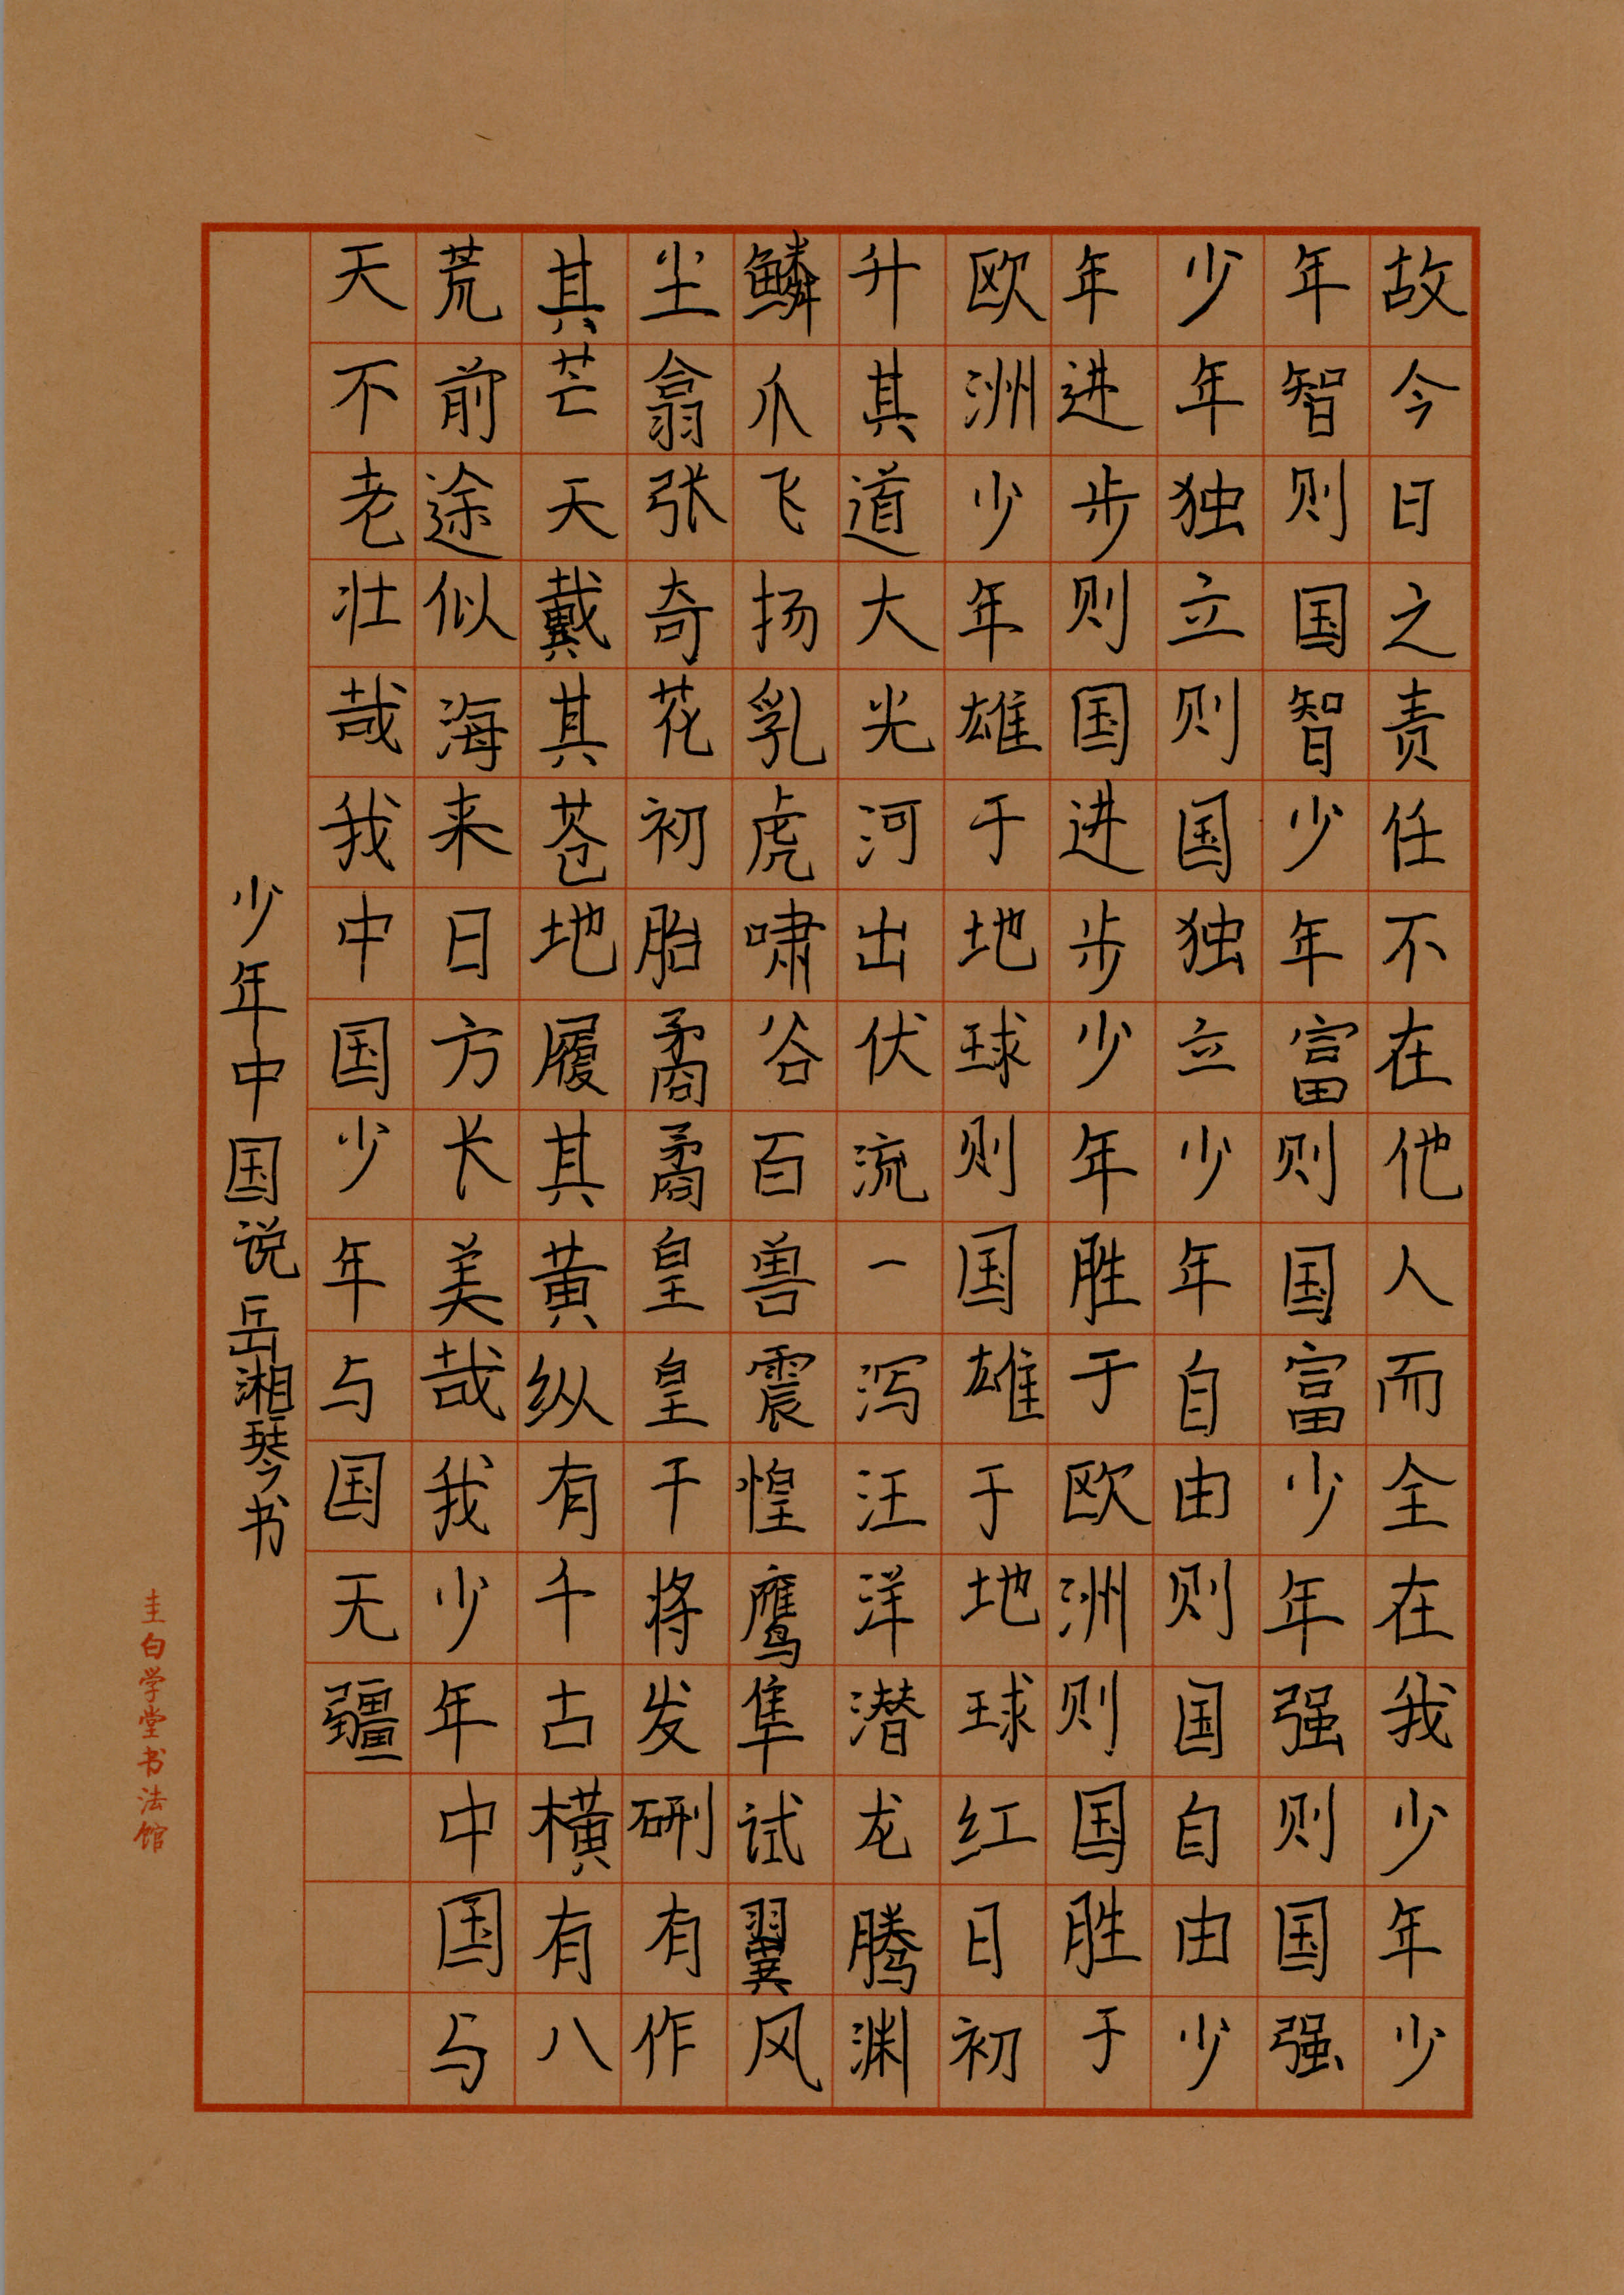 故今日之责任不在他人而全在我少年少
年智则国智少年富则国富少年强则国强
少年独立则国独立少年自由则国自由少
年进步则国进步少年胜于欧洲则国胜于
欧洲少年雄于地球则国雄于地球红日初
升其道大光河出伏流一泻汪洋潜龙腾渊
鳞爪飞扬乳虎啸谷百兽震惶鹰隼试翼风
尘翕张奇花初胎矞矞皇皇干将发硎有作
其芒天戴其苍地履其黄纵有千古横有八
荒前途似海来日方长美哉我少年中国与
天不老壮哉我中国少年与国无疆
少年中国说岳湘琴书
圭白学堂书法馆